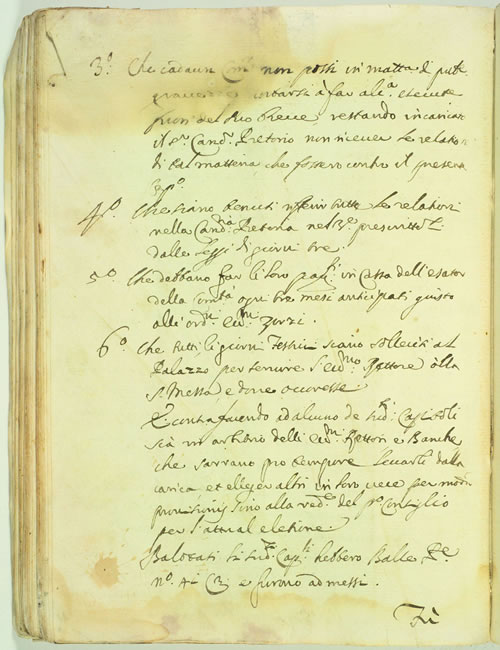 3.º Che cadaun Com.r non possi in matta di pub.e
portarsi à far alc.a esecut.e
del suo breve restando incaricato
il S.r Canc.r Pretorio non ricever le relationi
di tal matteria che fossero contro il presente
4.º Che siano tenuti riferir tutte le relationi
nella Canc.ria Pretoria nel prescrittoli
dalle Leggi di giorni tre.
5.º Che debbano far li loro pag.ti in Cassa dell'esator
della Com.tà ogni tre mesi anticipati giusto
alli ord.ni
6.º Che tutti li giorni Festivi siano solleciti al
Palazzo per servire S. Ecc.mo Rettore alla
S. Messa e dove occoresse
E contrafacendo ad alcuno de sud.ti Capitoli
sia in arbitrio delli Ecc.mi Rettori e Banche
che sarrano pro tempore levarli dalla
carica et elleger altri in loro vece per mod.m
provisionis sino alla red.ne del Consiglio
per l'attual eletione.
Balotati li sud.ti Cap.li hebbero Balle
n.º 4 - C 3 e furono admessi.
Fù